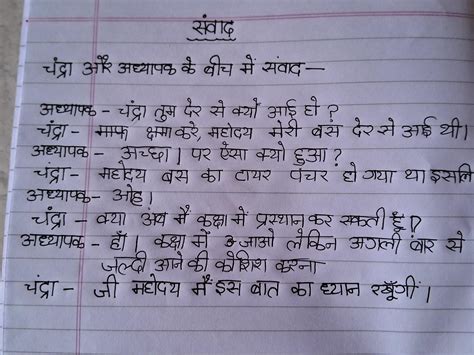 संवाद
चंद्रा और अध्यापक के बीच में संवाद —
अध्यापक - चंद्रा तुम देर से क्यों आई हो ?
चंद्रा - माफ क्षमा करे, महोदय मेरी बस देर से आई थी।
अध्यापक - अच्छा। पर ऐसा क्यों हुआ ?
चंद्रा - महोदय बस का टायर पंचर हो गया था इसलि
अध्यापक - ओह।
चंद्रा - क्या अब मैं कक्षा में प्रस्थान कर सकती हूँ?
अध्यापक - हाँ। कक्षा में आजाओ लेकिन अगली बार से
जल्दी आने की कोशिश करना
चंद्रा - जी महोदय मैं इस बात का ध्यान रखूँगीं।